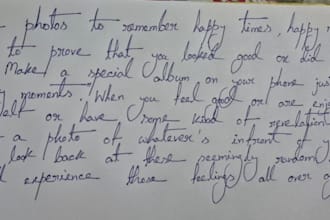 photos to remember happy times, happy
to prove that you looked good or did
Make a special album on your phone
moments. When you feel good or are
or have some kind of revelation
a photo of whatever's infront of
look back at these seemingly random
experience those feelings all over